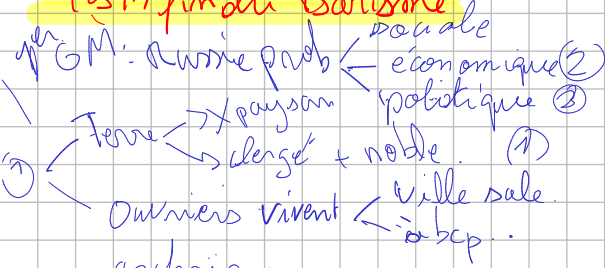 sociale
1er GM: Russie prob
économique (2)
politique (3)
Terre
X paysan
clergé + noble. (1)
(1)
Ouvriers vivent
ville sale.
à bcp..